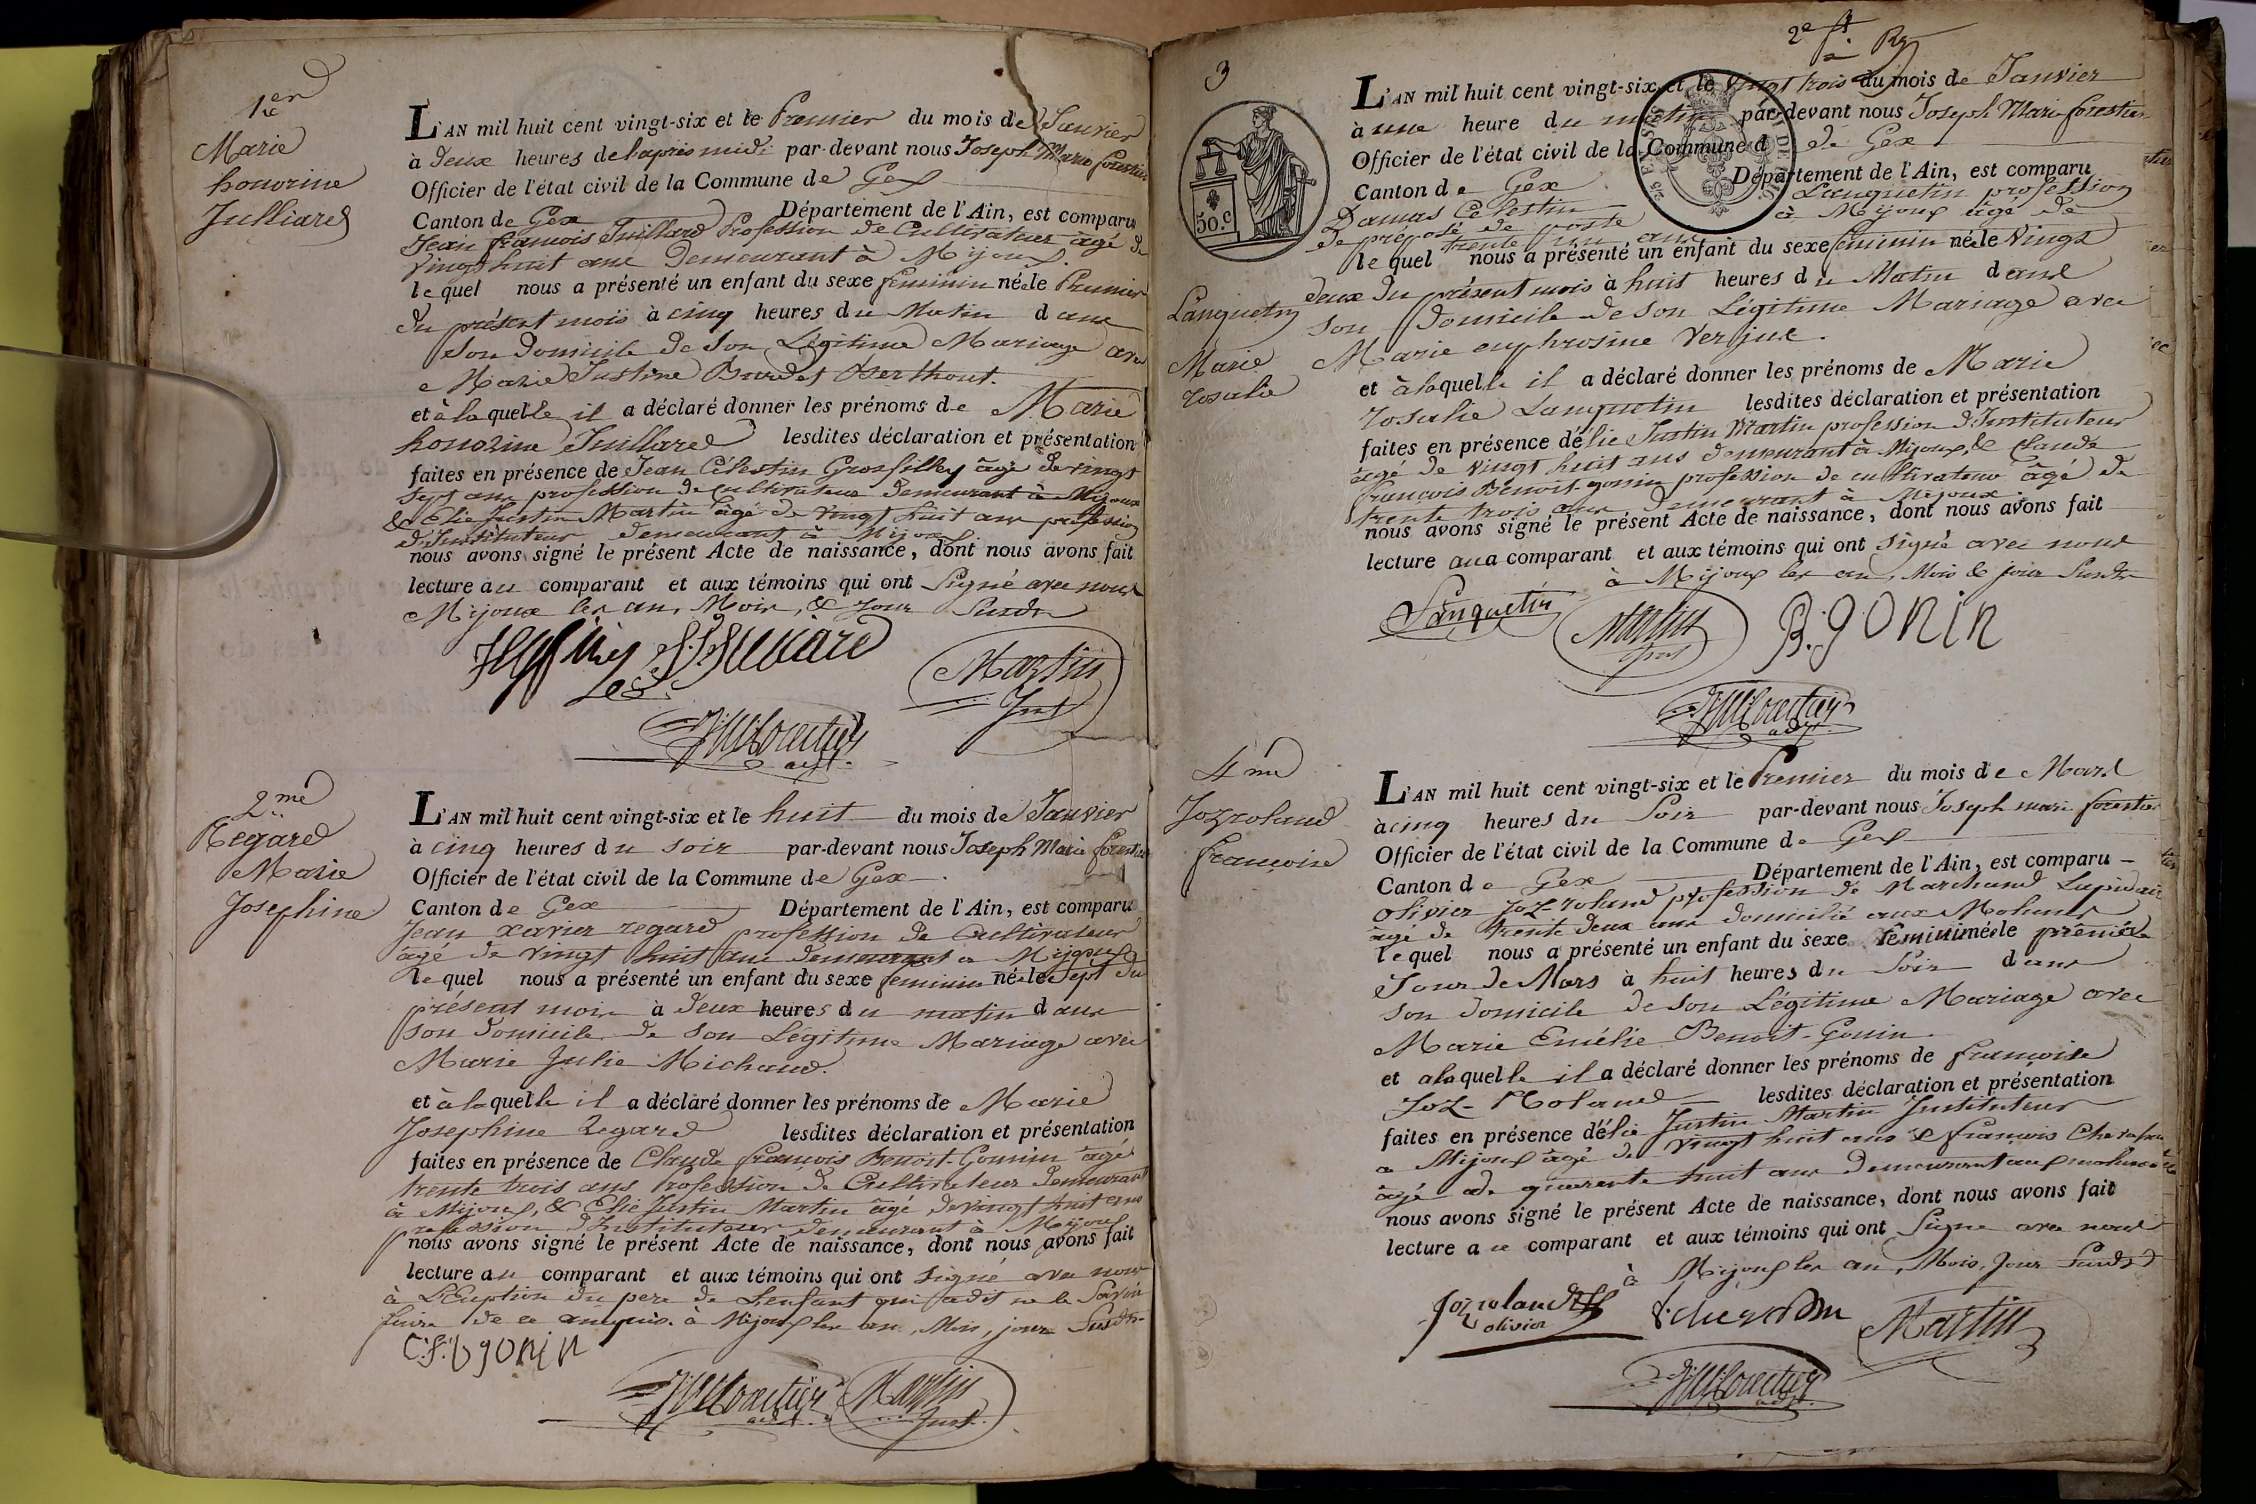 1er
Marie
honorine
Julliard
L'AN mil huit cent vingt-six et le Premier du mois de Janvier
à deux heures de l'après midi par-devant nous Joseph Marie forestier
Officier de l'état civil de la Commune de Gex
Canton de Gex Département de l'Ain, est comparu
Jean françois Juillard Profession de Cultivateur âgé de
vingt huit ans demeurant à Mijoux.
lequel nous a présenté un enfant du sexe feminin née le Premier
du présent mois à cinq heures du Matin dans
son domicile de son Légitime Mariage avec
Marie Justine Burdet Berthout.
et à laquelle il a déclaré donner les prénoms de Marie
honorine Juillard lesdites déclaration et présentation
faites en présence de Jean Célestin Grosfilley âgé de vingt
sept ans profession de cultivateur demeurant à Mijoux
& Elie Justin Martin âgé de vingt huit ans profession
d'Instituteur demeurant à Mijoux
nous avons signé le présent Acte de naissance, dont nous avons fait
lecture au comparant et aux témoins qui ont Signé avec nous
Mijoux les an, Mois, & Jour Susdits
Martin
Just
2me
Regard
Marie
Josephine
L'AN mil huit cent vingt-six et le huit du mois de Janvier
à cinq heures du soir par-devant nous Joseph Marie forestier
Officier de l'état civil de la Commune de Gex.
Canton de Gex Département de l'Ain, est comparu
Jean xavier regard profession de Cultivateur
âgé de vingt huit ans demeurant a Mijoux
lequel nous a présenté un enfant du sexe feminin née le Sept du
présent mois à deux heures du matin dans
son domicile de son Légitime Mariage avec
Marie Julie Michaud.
et à laquelle il a déclaré donner les prénoms de Marie
Josephine Regard lesdites déclaration et présentation
faites en présence de Claude françois Benoit-Gounin âgé
trente trois ans Profession de Cultivateur demeurant
à Mijoux, & Elie Justin Martin âgé de vingt huit ans
profession d'Instituteur demeurant à Mijoux
nous avons signé le présent Acte de naissance, dont nous avons fait
lecture au comparant et aux témoins qui ont signé avec nous
à L'Exeption du pere de L'enfant qui a dit ne le Savoir
faire de ce enquis. à Mijoux les an, Mois, jour Susdits
C.f. b gonin
Martin
Just.
3
2e
50.c
Lanquetin
Marie
rosalie
L'AN mil huit cent vingt-six et le vingt trois du mois de Janvier
à une heure du matin par-devant nous Joseph Marie forestier
Officier de l'état civil de la Commune d de Gex
Canton de Gex Département de l'Ain, est comparu
Damas Celestin Lanquetin profession
de préposé de poste à Mijoux âgé de
trente un ans
lequel nous a présenté un enfant du sexe feminin née le vingt
deux du présent mois à huit heures du Matin dans
son domicile de son Légitime Mariage avec
Marie euphrosine Verjux.
et à laquelle il a déclaré donner les prénoms de Marie
rosalie Lanquetin lesdites déclaration et présentation
faites en présence d'élie Justin Martin profession d'Instituteur
âgé de vingt huit ans demeurant à Mijoux, & Claude
françois Benoit-gonin profession de cultivateur âgé de
trente trois ans demeurant à Mijoux.
nous avons signé le présent Acte de naissance, dont nous avons fait
lecture au comparant et aux témoins qui ont signé avec nous
à Mijoux les an, Mois & jour Susdits
Lanquetin
Martin
B. gonin
4me
Jozroland
françoise
L'AN mil huit cent vingt-six et le Premier du mois de Mars
à cinq heures du Soir par-devant nous Joseph marie forestier
Officier de l'état civil de la Commune de Gex
Canton de Gex Département de l'Ain, est comparu
Olivier Joz-roland profession de Marchand Lapidaire
âgé de trente deux ans domicilié aux Molunes
lequel nous a présenté un enfant du sexe feminin née le premier
Jour de Mars à huit heures du Soir dans
son domicile de son Légitime Mariage avec
Marie Emélie Benoit-Gonin.
et a laquelle il a déclaré donner les prénoms de françoise
Joz-Roland lesdites déclaration et présentation
faites en présence d'élie Justin Martin Instituteur
a Mijoux âgé de vingt huit ans & françois
âgé de quarente huit ans demeurant aux molunes
nous avons signé le présent Acte de naissance, dont nous avons fait
lecture au comparant et aux témoins qui ont Signe avec nous
à Mijoux les an, Mois, Jour Susdits
Jozroland
olivier
Martin